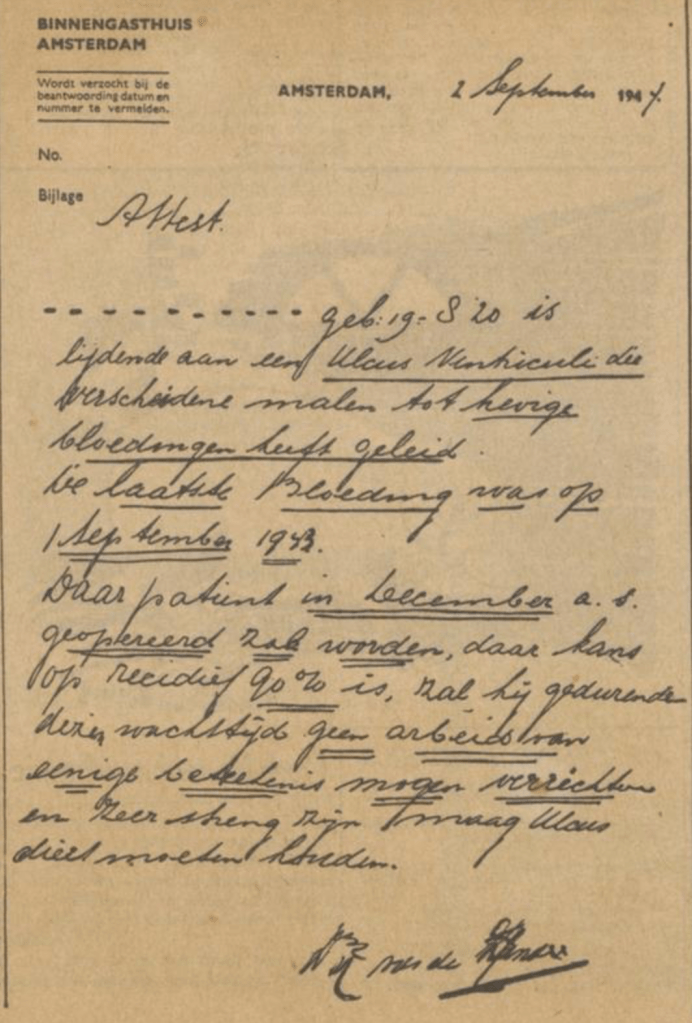 BINNENGASTHUIS
AMSTERDAM
Wordt verzocht bij de
beantwoording datum en
nummer te vermelden.
AMSTERDAM, 2 September 1947.
No.
Bijlage
Attest.
- - - - - - - - - - - geb: 19-8 20 is
lijdende aan een Ulcus Ventriculi die
verscheidene malen tot hevige
bloedingen heeft geleid.
De laatste Bloeding was op
1 September 1943.
Daar patient in December a.s.
geopereerd zal worden, daar kans
op recidief 90% is, zal hij gedurende
dezen wachttijd geen arbeid van
eenige betekenis mogen verrichten
en zeer streng zijn maag Ulcus
dieet moeten houden.
van de